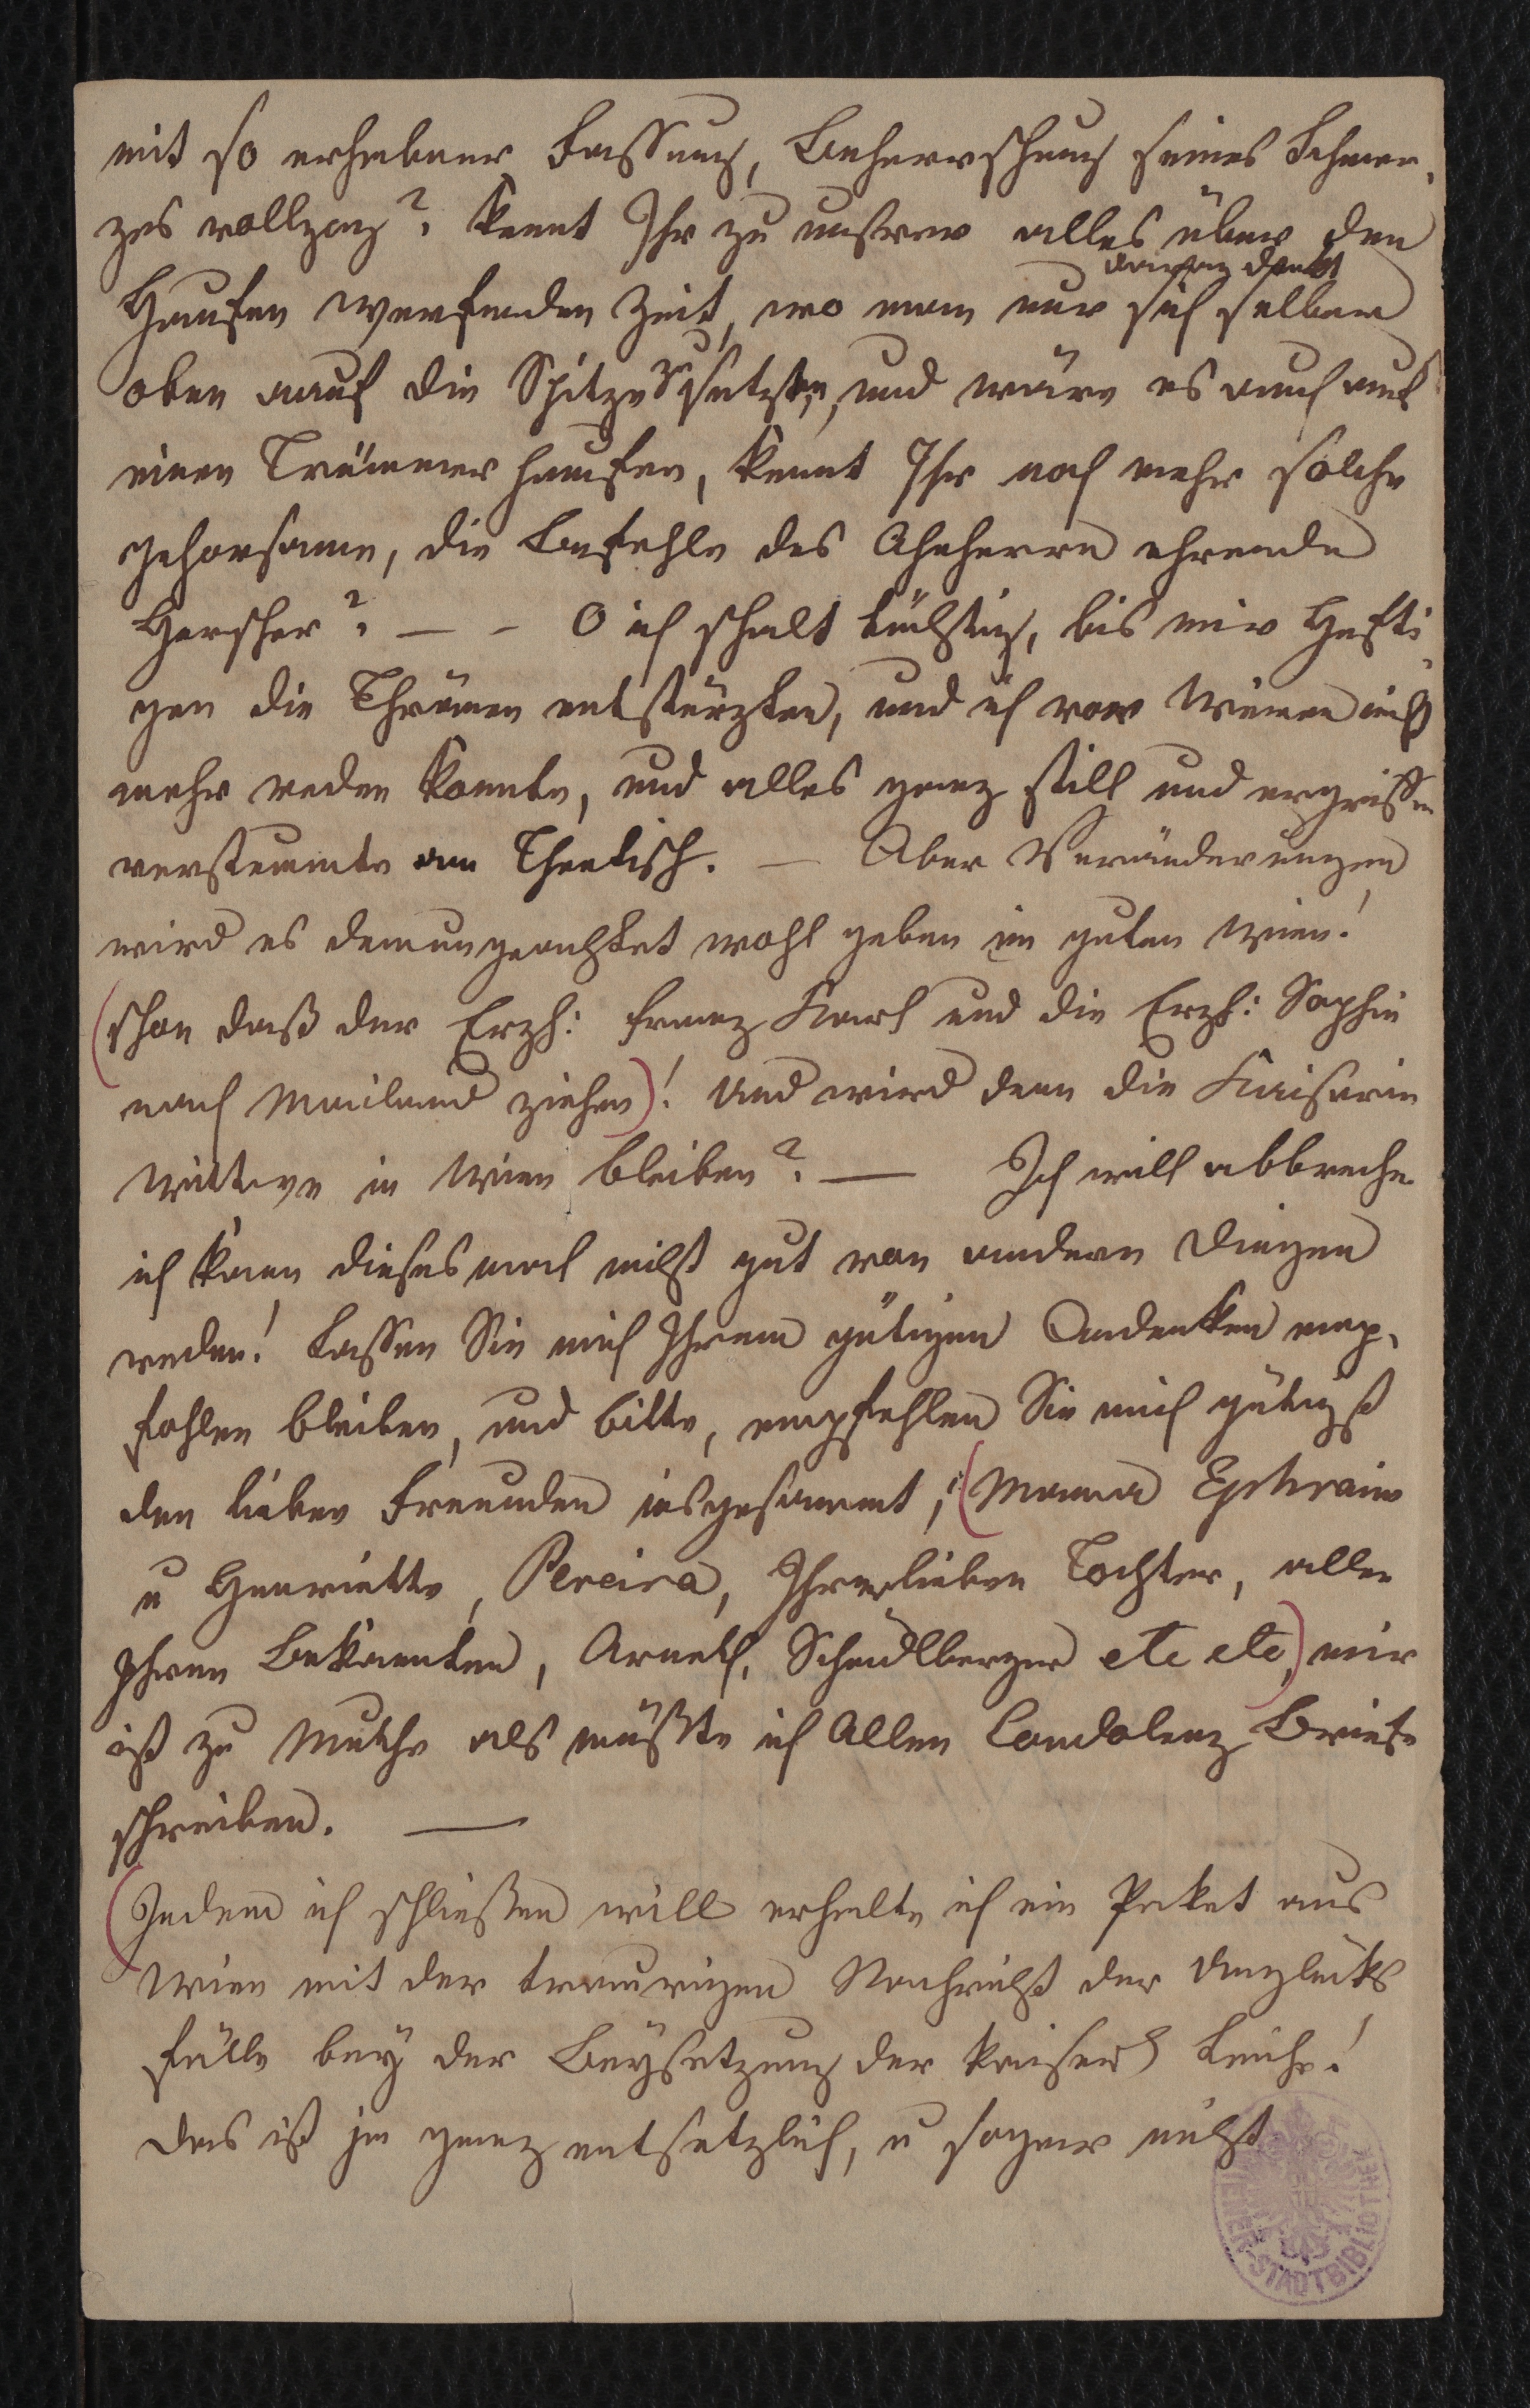 mit so erhabener Fassung, Beherrschung seines Schmer-
zes vollzog? Kennt Ihr zu unserer alles über den
Haufen werfenden Zeit, wo man nur darang denkt sich selber
oben auf die Spitze zu setzten, und wäre es auch auf
einen Trümmerhaufen, kennt Ihr noch mehr solche
gehorsame, die Befehle des Ahnherrn ehrende
Herscher? — – O ich schalt tüchtig, bis mir Hefti-
gen die Thränen entstürzten, und ich vor Weinen nicht
mehr reden konnte, und alles ganz still und ergriffen
verstummte am Theetisch. — Aber Veränderungen
wird es demungeachtet wohl geben im guten Wien!
(schon daß der Erzh: Franz Karl und die Erzh: Sophie
nach Mailand ziehen)! Und wird denn die Kaiserin
Wittwe in Wien bleiben? — Ich will abbrechen
ich kann dieses mal nicht gut von andern Dingen
reden! Lassen Sie mich Ihrem gütigen Andenken emp-
fohlen bleiben, und bitte, empfehlen Sie mich gütigst
den lieben Freunden insgesammt, (Mama Ephraim
u Henriette, Pereira, Ihrer lieben Tochter, allen
Ihren Bekannten, Arneth, Schmidlberger etc etc,) mir
ist zu Muthe als müßte ich Allen Condolenz Briefe
schreiben. —
(Indem ich schließen will erhalte ich ein Paket aus
Wien mit der traurigen Nachricht der Unglücks
fälle bey der Beysetzung der Kaiserl Leiche!
das ist ja ganz entsetzlich, u sogar nicht
WIENER STADTBIBLIOTHEK